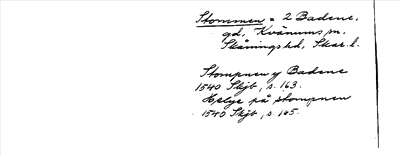 Stommen = 2 Badene.
gd, Kvänums sn.
Skånings hd, Skar. l.
Stompnen y Badene
1540 Skjb, s. 163.
Helge på stompnen
1540 Skjb, s. 165.